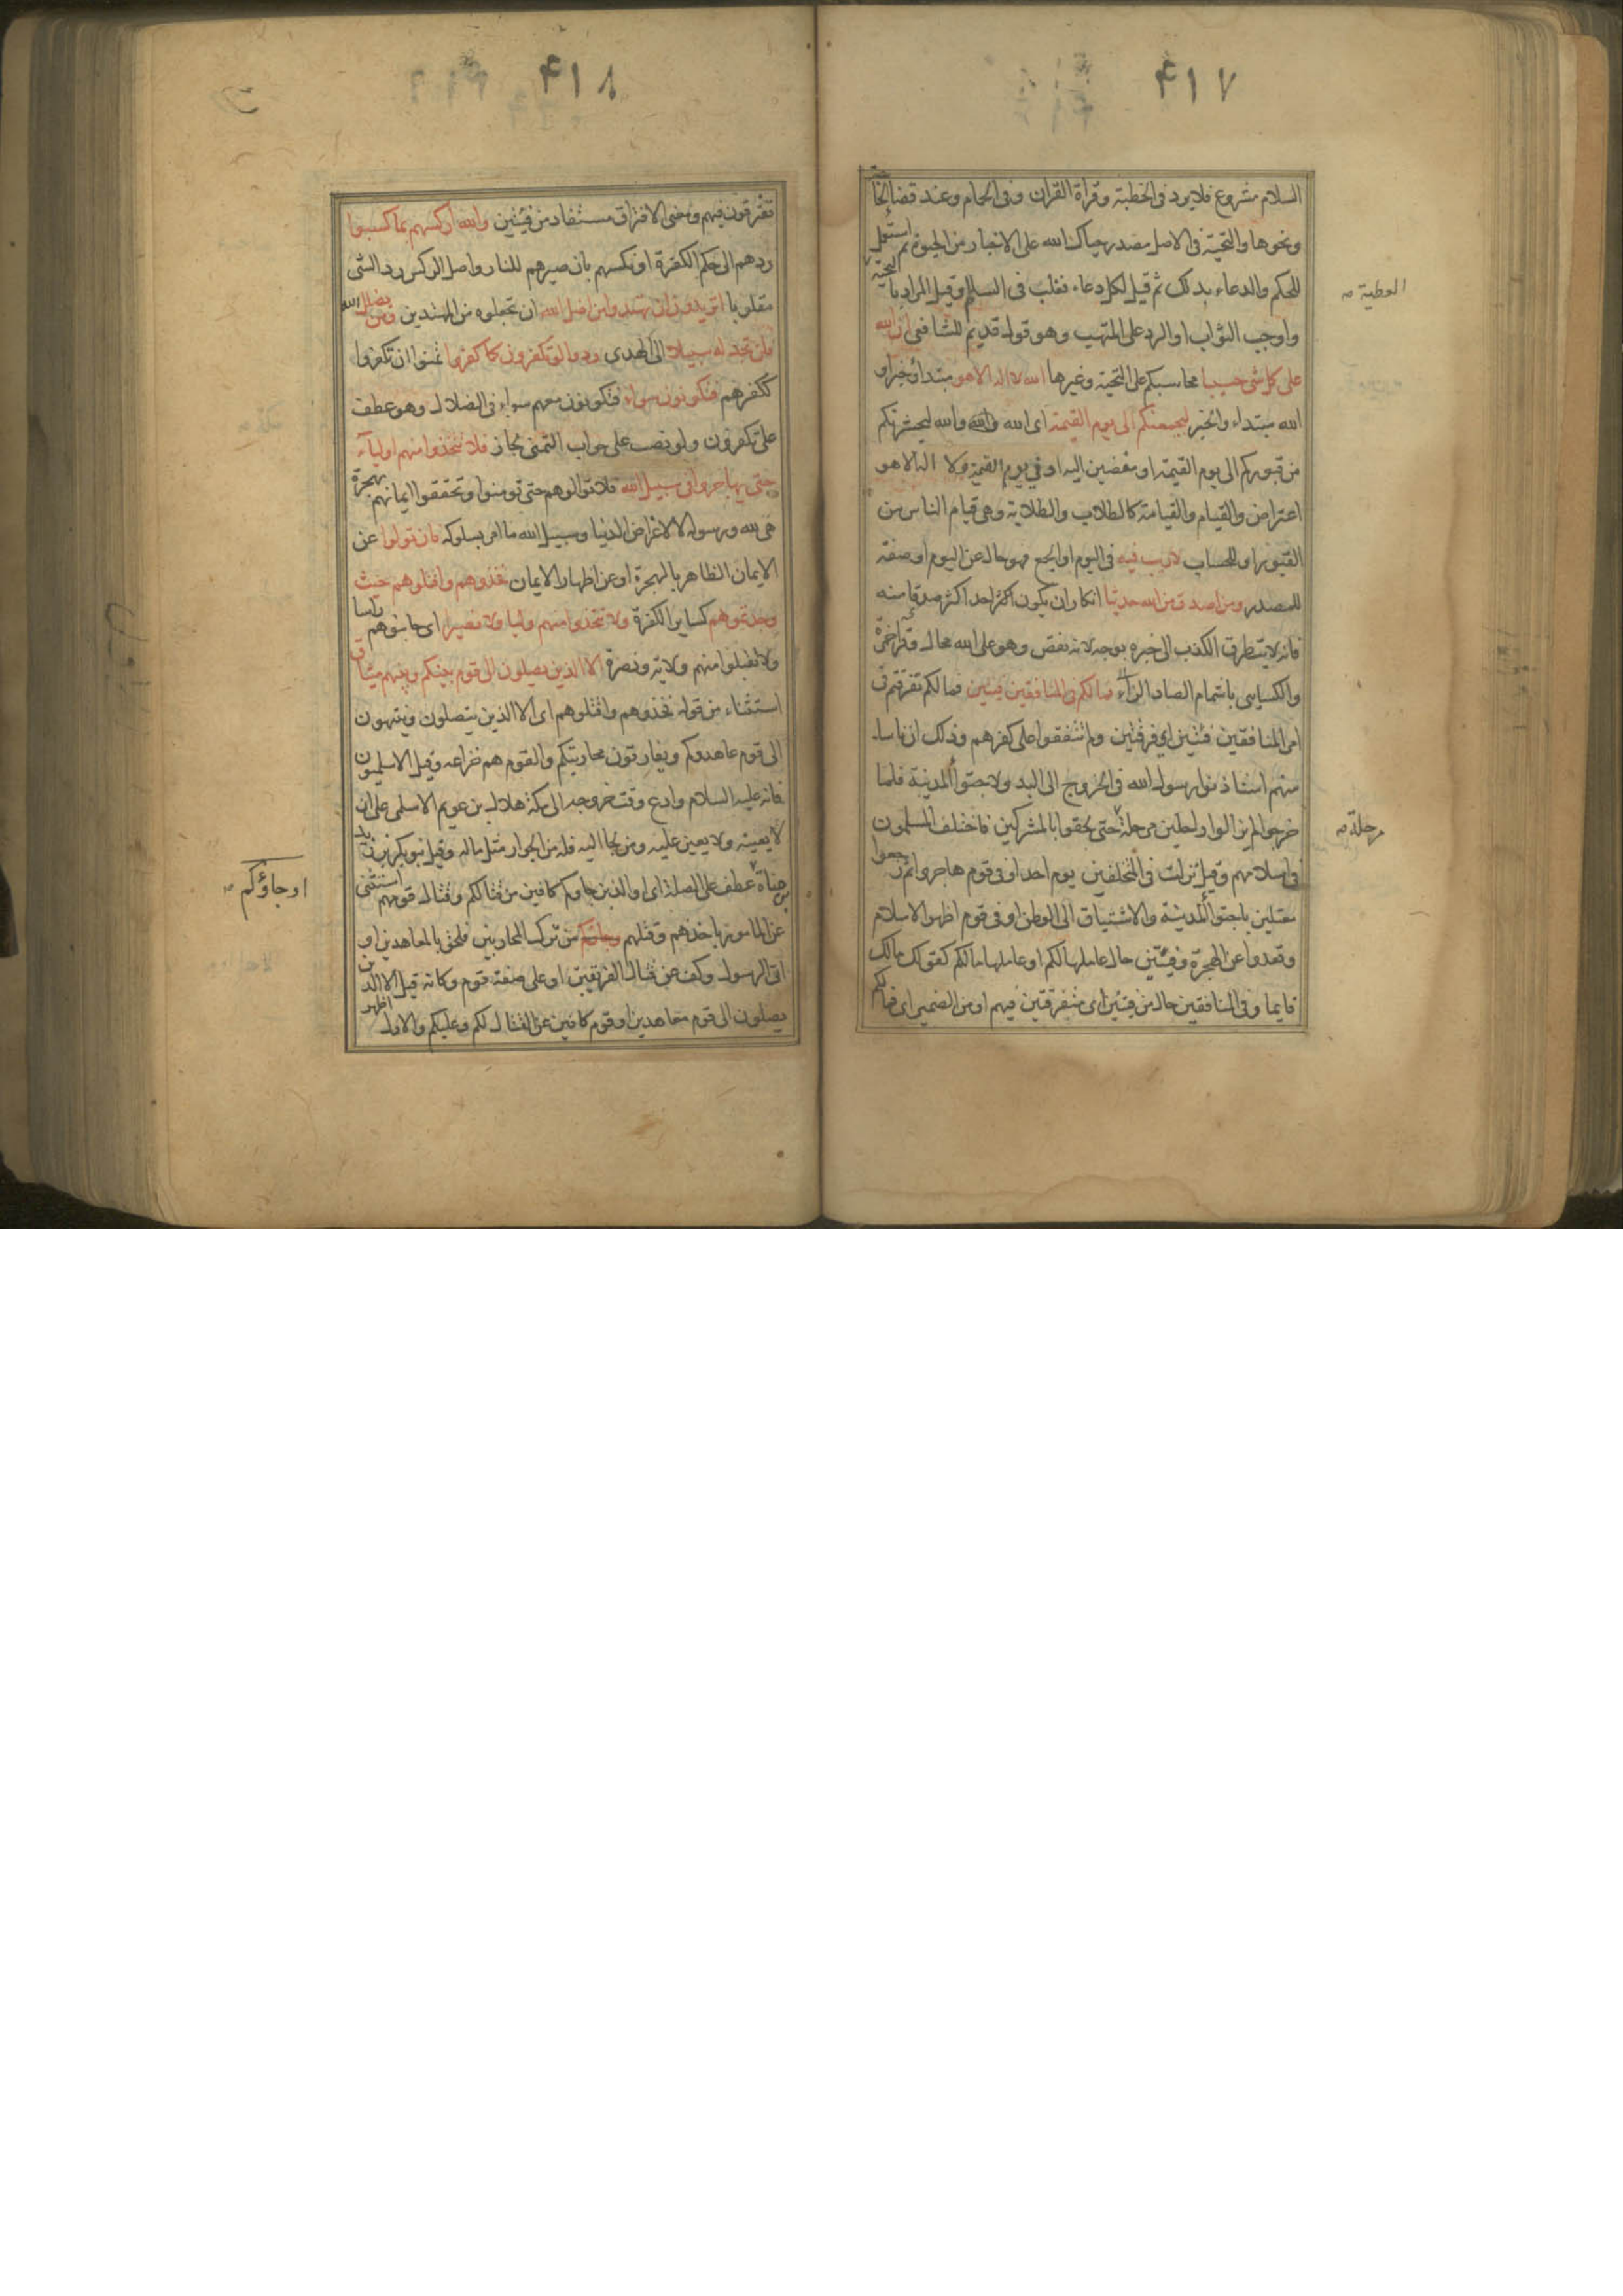 ٤١٧
السلام مشروع فلا يرد فى الخطبة وقراة القران وفى الحمام وعند قضا الحا
ونحوها والتحية فى الاصل مصدر حياك الله على الاخبار من الحيوة ثم استعمل
للحكم والدعاء بذلك ثم قيل لكل دعاء فغلب فى السلم وقيل المراد با التحية
العطية صـ
واوجب الثواب او الرد على المتهب وهو قول قديم للشافعى ان الله
على كل شى حسيبا محاسبكم على التحية وغيرها الله لا اله الا هو مبتدأ وخبر او
الله مبتداء والخبر ليجمعنكم الى يوم القيمة اى الله والله ليحشرنكم
من قبوركم الى يوم القيمة او مفضين اليه او فى يوم القيمة ولا اله الا هو
اعتراض والقيام والقيامة كالطلاب والطلابة وهى قيام الناس من
القبور او للحساب لا ريب فيه فى اليوم او الجمع فهو حال عن اليوم او صفة
للمصدر ومن اصدق من الله حديثا انكار ان يكون اكثر احد اكثر صدقا منه
فانه لا يتطرق الكذب الى خبره بوجه لانه نقص وهو على الله محال وقرا حمزة
والكسايى باشمام الصاد الزاء فما لكم فى المنافقين فئتين فما لكم تفرقتم فى
امر المنافقين فئتين اى فرقتين ولم تتفقوا على كفرهم وذلك ان ناسا
منهم استاذنوا رسول الله فى الخروج الى البد ولاجتوا المدينة فلما
خرجوا لم يزالوا راحلين مرحلة حتى لحقوا بالمشركين فاختلف المسلمون
مرحلة صـ
فى اسلامهم وقيل نزلت فى المتخلفين يوم احد او فى قوم هاجروا ثم رجعوا
معتلين باجتوا المدينة والاشتياق الى الوطن او فى قوم اظهروا الاسلام
وقعدوا عن الهجرة وفئتين حال عاملها لكم او عاملها مالكم كقولك مالك
قايما وفى المنافقين حال من فئتين اى متفرقتين فيهم او من الضمير اى فما لكم
٤١٨
تفرقون فيهم ومعنى الافتراق مستفاد من فئتين والله اركسهم بما كسبوا
ردهم الى حكم الكفرة او نكسهم بان صيرهم للنار واصل الركس رد الشى
مقلوبا اتريدون ان تهتدوا من اضل الله ان تجعلوه من المهتدين ومن يضلل الله
فلن تجد له سبيلا الى الهدى ودوا لو تكفرون كما كفروا تمنوا ان تكفروا
ككفرهم فتكونون سواء فتكونون معهم سواء فى الضلال وهو عطف
على تكفرون ولو نصب على جواب التمنى لجاز فلا تتخذوا منهم اولياء
حتى يهاجروا فى سبيل الله فلا توالوهم حتى تومنوا وتحققوا ايمانهم بهجرة
هى لله ورسوله لا لاغراض الدنيا وسبيل الله ما امر بسلوكه فان تولوا عن
الايمان الظاهر بالهجرة او عن اظهار الايمان فخذوهم واقتلوهم حيث
وجدتموهم كساير الكفرة ولا تتخذوا منهم وليا ولا نصيرا اى جانبوهم راسا
ولا تقبلوا منهم ولاية ونصرة الا الذين يصلون الى قوم بينكم وبينهم ميثاق
استثناء من قوله فخذوهم واقتلوهم اى الا الذين يتصلون وينتهون
الى قوم عاهدوكم ويفارقون محاربتكم والقوم هم خزاعه وقيل الاسلميون
فانه عليه السلام وادع وقت خروجه الى مكة هلال بن عويمر الاسلمى على ان
لا يعينه ولا يعين عليه ومن لجا اليه فله من الجوار مثل ماله وقيل بنو بكر بن زيد
بن مناة عطف على الصلة اى او الذين جاوكم كافين من قتالكم وقتال قومهم استثنى
اوجاؤكم صـ
عن المامور باخذهم وقتلهم من ترك المحاربين فلحق بالمعاهدين او
اتى الرسول وكف عن قتال الفريقين او على صفة قوم وكانه قيل الا الذين
يصلون الى قوم معاهدين او قوم كافين عن القتال لكم وعليكم والاول اظهر